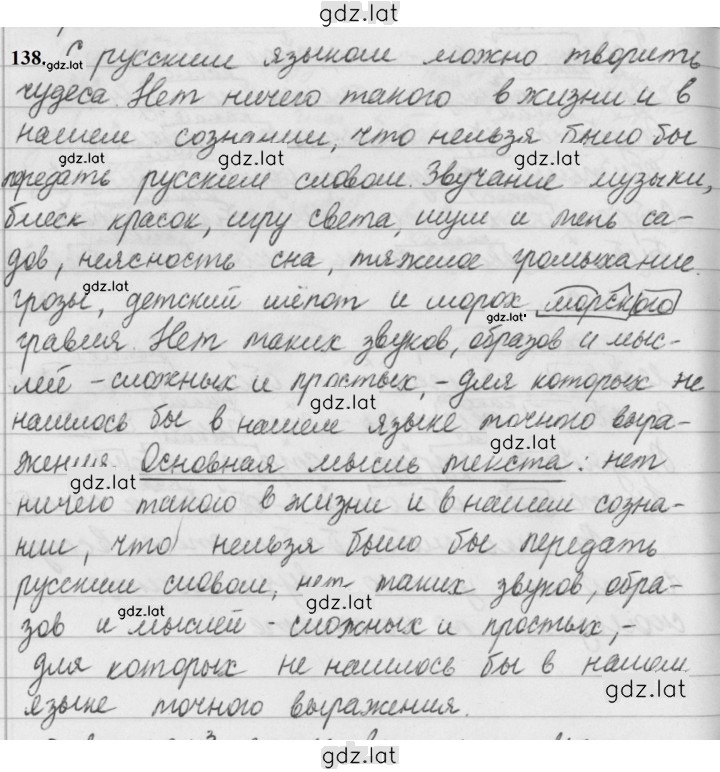 gdz.lat
138. С русским языком можно творить
gdz.lat
чудеса. Нет ничего такого в жизни и в
нашем сознании, что нельзя было бы
gdz.lat gdz.lat gdz.lat
передать русским словом. Звучание музыки,
блеск красок, игру света, шум и тень са-
gdz.lat gdz.lat
дов, неясность сна, тяжкое громыхание
gdz.lat
грозы, детский шёпот и шорох морского
gdz.lat
гравия. Нет таких звуков, образов и мыс-
лей - сложных и простых, - для которых не
gdz.lat
нашлось бы в нашем языке точного выра-
gdz.lat
жения. Основная мысль текста: нет
gdz.lat
ничего такого в жизни и в нашем созна-
нии, что нельзя было бы передать
русским словом, нет таких звуков, обра-
gdz.lat
зов и мыслей - сложных и простых, -
для которых не нашлось бы в нашем
gdz.lat
языке точного выражения.
gdz.lat